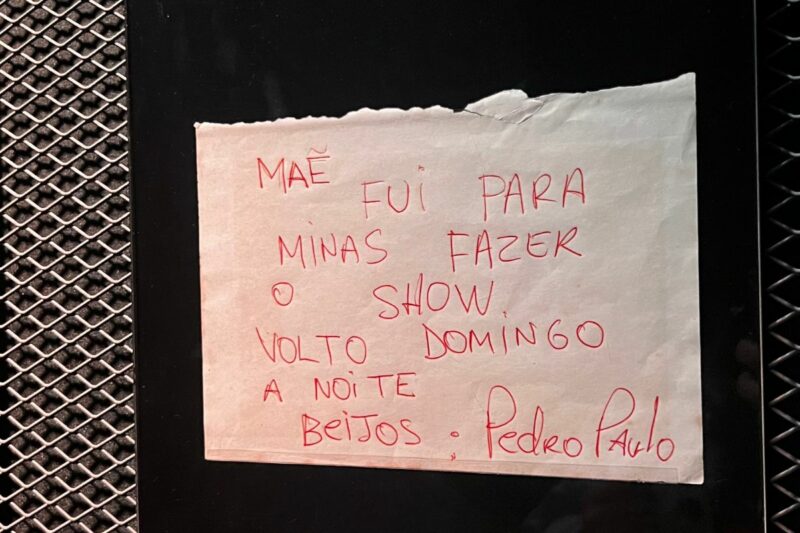 MAẼ
FUI PARA
MINAS FAZER
O SHOW
VOLTO DOMINGO
A NOITE
BEIJOS : Pedro Paulo